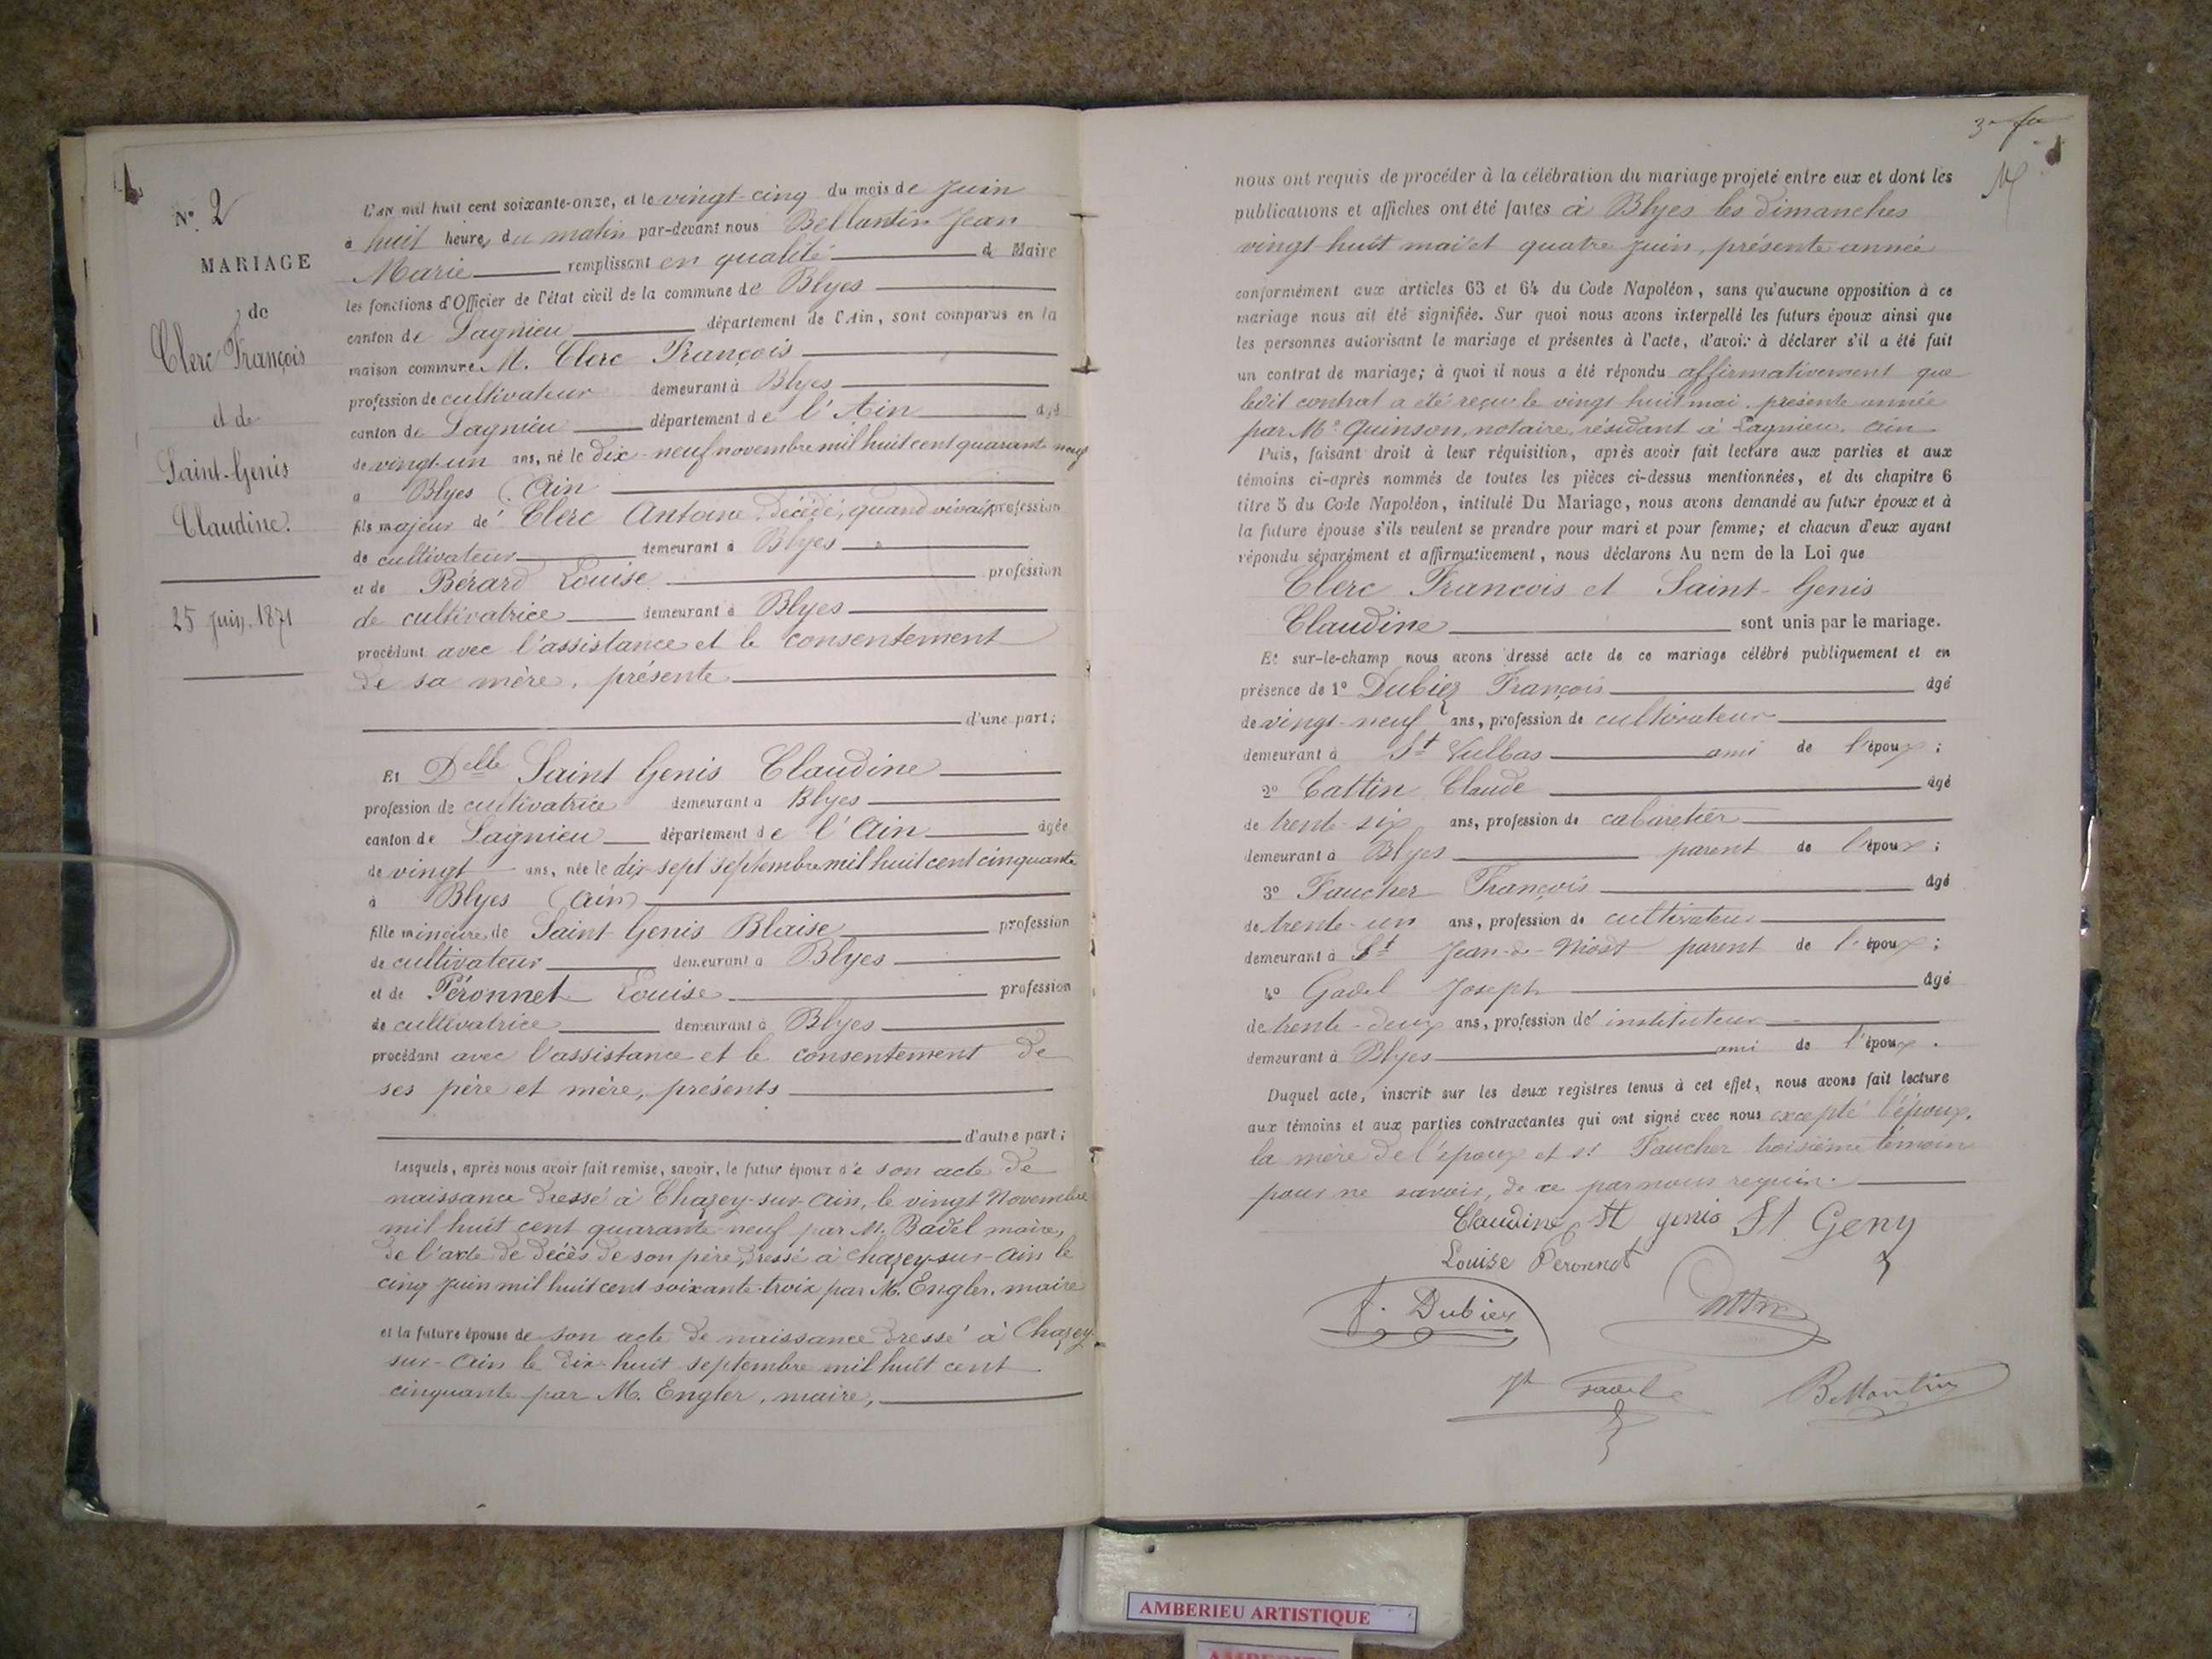 N.° 2
MARIAGE
de
Clerc François
et de
Saint-Genis
Claudine.
25 Juin 1871
L'an mil huit cent soixante-onze, et le vingt-cinq du mois de Juin
à huit heures du matin par-devant nous Bellantin Jean
Marie remplissant en qualité de Maire
les fonctions d'Officier de l'état civil de la commune de Blyes
canton de Lagnieu département de l'Ain, sont comparus en la
maison commune M. Clerc François
profession de cultivateur demeurant à Blyes
canton de Lagnieu département de l'Ain âgé
de vingt-un ans, né le dix-neuf novembre mil huit cent quarant neuf
à Blyes (Ain
fils majeur de Clerc Antoine décédé, quand vivait profession
de cultivateur demeurant à Blyes
et de Bérard Louise profession
de cultivatrice demeurant à Blyes
procédant avec l'assistance et le consentement
de sa mère, présente
d'une part;
Et Delle Saint Genis Claudine
profession de cultivatrice demeurant à Blyes
canton de Lagnieu département de l'Ain âgée
de vingt ans, née le dix-sept septembre mil huit cent cinquante
à Blyes (Ain)
fille mineure de Saint Genis Blaise profession
de cultivateur demeurant à Blyes
et de Péronnet Louise profession
de cultivatrice demeurant à Blyes
procédant avec l'assistance et le consentement de
ses père et mère, présents
d'autre part;
Lesquels, après nous avoir fait remise, savoir, le futur époux de son acte de
naissance dressé à Chazey-sur-Ain, le vingt Novembre
mil huit cent quarante-neuf par M. Badel maire,
de l'acte de décès de son père, dressé à Chazey-sur-Ain le
cinq juin mil huit cent soixante-trois par M. Engler, maire
et la future épouse de son acte de naissance dressé à Chazey-
sur-Ain le dix-huit septembre mil huit cent
cinquante par M. Engler, maire,
nous ont requis de procéder à la célébration du mariage projeté entre eux et dont les
publications et affiches ont été faites à Blyes les dimanches
vingt huit mai et quatre juin, présente année
conformément aux articles 63 et 64 du Code Napoléon, sans qu'aucune opposition à ce
mariage nous ait été signifiée. Sur quoi nous avons interpellé les futurs époux ainsi que
les personnes autorisant le mariage et présentes à l'acte, d'avoir à déclarer s'il a été fait
un contrat de mariage; à quoi il nous a été répondu affirmativement que
ledit contrat a été reçu le vingt huit mai, présente année
par Me Quinson, notaire, résidant à Lagnieu, Ain
Puis, faisant droit à leur réquisition, après avoir fait lecture aux parties et aux
témoins ci-après nommés de toutes les pièces ci-dessus mentionnées, et du chapitre 6
titre 5 du Code Napoléon, intitulé Du Mariage, nous avons demandé au futur époux et à
la future épouse s'ils veulent se prendre pour mari et pour femme; et chacun d'eux ayant
répondu séparément et affirmativement, nous déclarons Au nom de la Loi que
Clerc François et Saint-Genis
Claudine sont unis par le mariage.
Et sur-le-champ nous avons dressé acte de ce mariage célébré publiquement et en
présence de 1° Dubiez François âgé
de vingt-neuf ans, profession de cultivateur
demeurant à St Vulbas ami de l'époux;
2° Cattin Claude âgé
de trente-six ans, profession de cabaretier
demeurant à Blyes parent de l'époux;
3° Faucher François âgé
de trente-un ans, profession de cultivateur
demeurant à St Jean-de-Niost parent de l'époux;
4° Gadel Joseph âgé
de trente-deux ans, profession de instituteur
demeurant à Blyes ami de l'époux.
Duquel acte, inscrit sur les deux registres tenus à cet effet, nous avons fait lecture
aux témoins et aux parties contractantes qui ont signé avec nous excepté l'époux,
la mère de l'époux et sr Faucher troisième témoin
pour ne savoir, de ce par nous requis.
Claudine St genis St Geny
Louise Peronnet
f. Dubiez
Cattin
Jh Gadel
Bellantin
AMBERIEU ARTISTIQUE